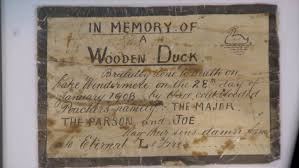 IN MEMORY OF
A
WOODEN DUCK
Brutally done to death on
Lake Windermere, on the 28th day of
January 1908 by three cold blooded
Poachers namely: THE MAJOR
THE PARSON and JOE
May their sins damn them
to Eternal